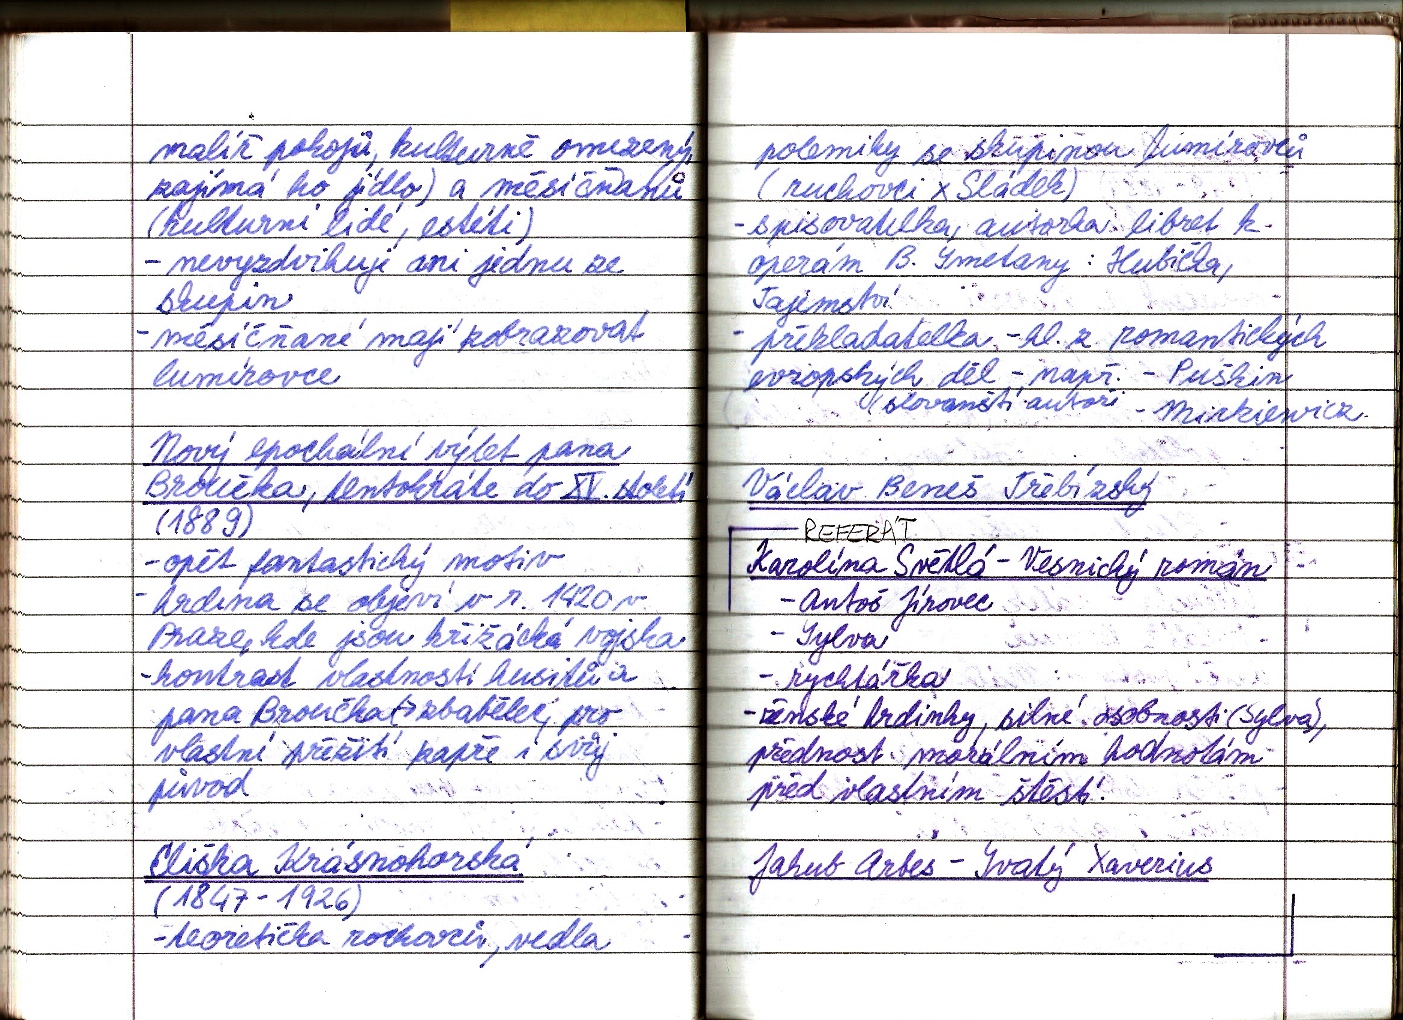 malíř pokojů, kulturně omezený,
zajímá ho jídlo) a měsíčňanů
(kulturní lidé, estéti)
- nevyzdvihují ani jednu ze
skupin
- měsíčňané mají zobrazovat
lumírovce
Nový epochální výlet pana
Broučka, tentokráte do XV. století
(1889)
- opět fantastický motiv
- hrdina se objeví v r. 1420 v
Praze, kde jsou křižácká vojska
- kontrast vlastností husitů a
pana Broučka (> zbabělec, pro
vlastní přežití zapře i svůj
původ
Eliška Krásnohorská
(1847 - 1926)
- teoretička ruchovců, vedla
polemiky se skupinou lumírovců
(ruchovci x Sládek)
- spisovatelka, autorka libret k
operám B. Smetany : Hubička,
Tajemství
- překladatelka - hl. z romantických
evropských děl - např. - Puškin
(slovanští autoři - Mickiewicz
Václav Beneš Třebízský
REFERÁT
Karolína Světlá - Vesnický román
- Antoš Jírovec
- Sylva
- rychtářka
- ženské hrdinky, silné osobnosti (Sylva),
přednost morálním hodnotám
před vlastním štěstí.
Jakub Arbes - Svatý Xaverius